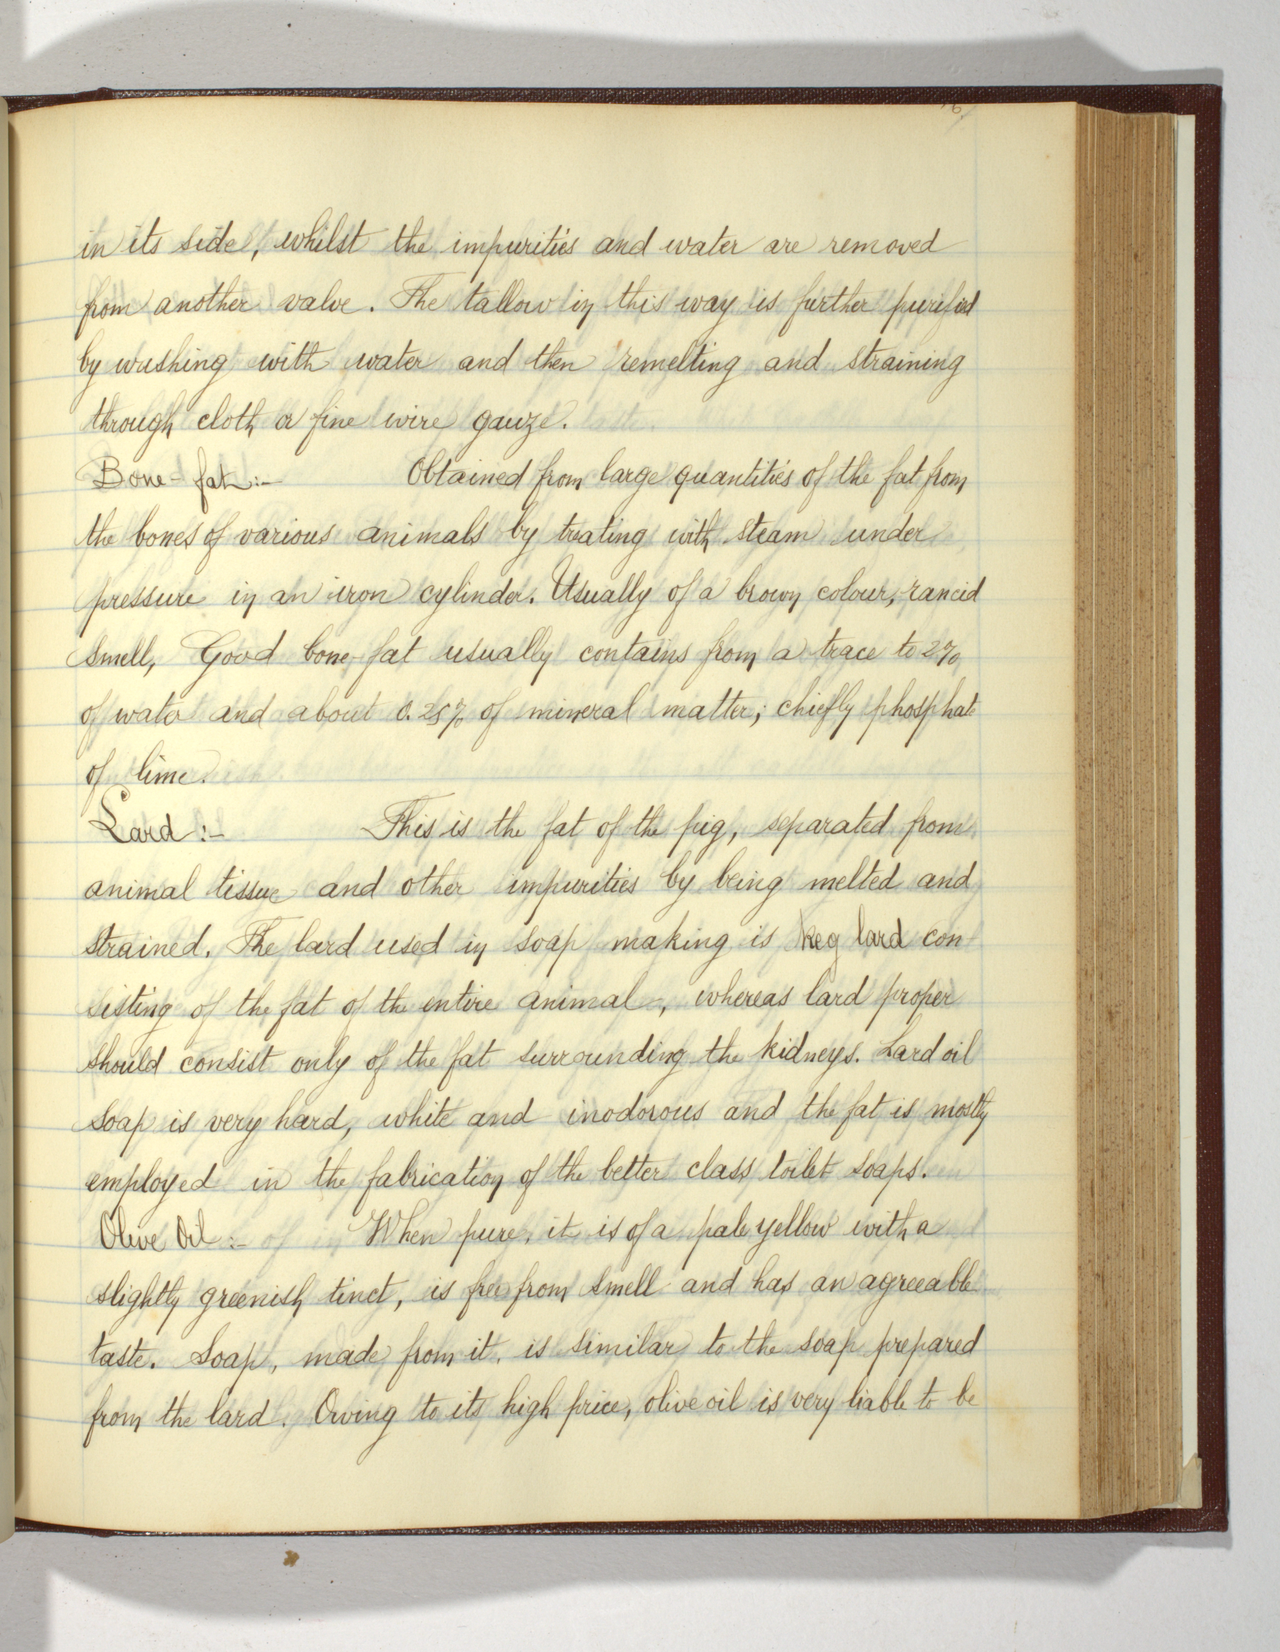 in its side, whilst the impurities and water are removed
from another valve. The tallow in this way is further purified
by washing with water and then remelting and straining
through cloth or fine wire gauze.
Bone-fat:- Obtained from large quantities of the fat from
the bones of various animals by treating with steam under
pressure in an iron cylinder. Usually of a brown colour, rancid
smell, Good bone fat usually contains from a trace to 2%
of water and about 0.25% of mineral matter; chiefly phosphate
of lime.
Lard:- This is the fat of the pig, separated from
animal tissue and other impurities by being melted and
strained. The lard used in soap making is keg lard con
sisting of the fat of the entire animal, whereas lard proper
should consist only of the fat surrounding the kidneys. Lard oil
soap is very hard, white and inodorous and the fat is mostly
employed in the fabrication of the better class toilet soaps.
Olive Oil:- When pure, it is of a pale yellow with a
slightly greenish tinct, is free from smell and has an agreeable
taste. Soap, made from it, is similar to the soap prepared
from the lard. Owing to its high price, olive oil is very liable to be